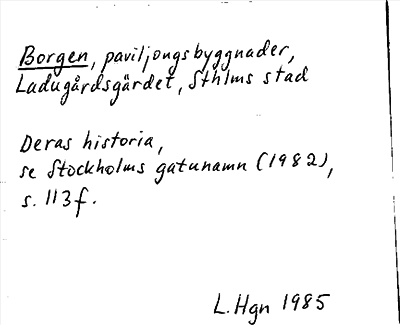 Borgen, paviljongsbyggnader,
Ladugårdsgärdet, Sthlms stad
Deras historia,
se Stockholms gatunamn (1982),
s. 113f.
L. Hgn 1985